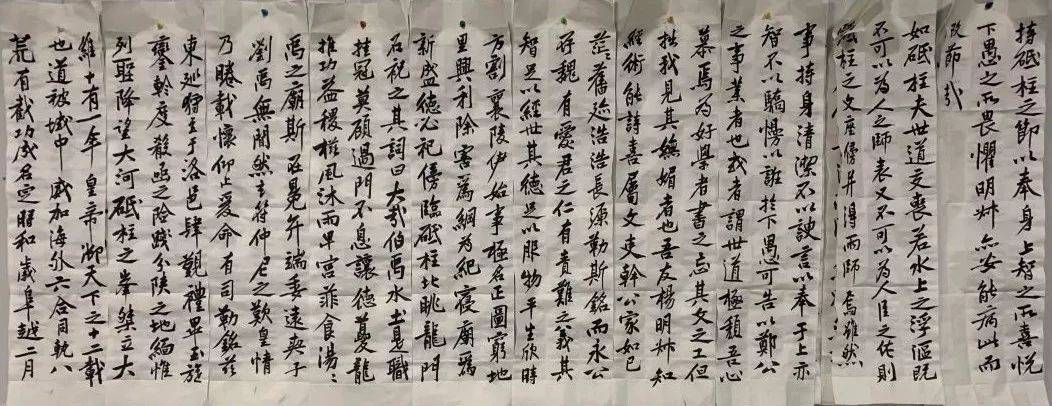 維十有一年 皇帝御天下之十二載
也道被域中 威加海外六合同軌八
荒有截功成名定時和歲阜越二月
東巡狩至于洛邑肆觀禮畢玉旋
鑾軨度殽函之險踐分陝之地緬惟
列聖降望大河砥柱之峯桀立大
禹之廟斯在冕弁端委遠契
劉禹無間然玄符仲尼之歎皇情
乃睠載懷仰止爰命有司勒銘茲
石祝之其詞曰大哉伯禹水土是職
挂冠莫顧過門不息讓德夔龍
推功益稷櫛風沐雨卑宮菲食湯〻
方割襄陵伊始事極名正圖窮地
里興利除害為綱為紀寢廟為
新盛德必祀傍臨砥柱北眺龍門
茫〻舊迹浩浩長源勒斯銘而永公
存魏有愛君之仁有責難之義其
智足以經世其德足以服物平生欣時
慕焉為好學者書之忘其文之工但
拙我見其嫵媚者也吾友楊明叔知
經術能詩喜屬文吏幹公家如已
事持身清潔不以諛言以奉于上亦
智不以驕慢以誑於下愚可告以鄭公
之事業者也或者謂世道極頹吾心
如砥柱夫世道交喪若水上之浮漚既
不可以為人之師表又不可以為人臣之佐則
柱之文座傍并得兩師焉雖然
持砥柱之節以奉身上智之所喜悅
下愚之所畏懼明叔亦安能病此而
改節哉